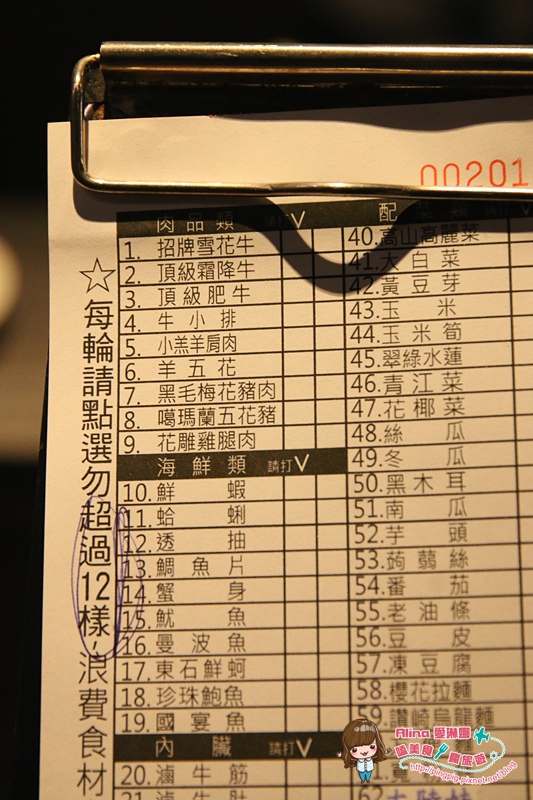 00201
☆每輪請點選勿超過12樣,浪費食材
肉品類 V
1. 招牌雪花牛
2. 頂級霜降牛
3. 頂級肥牛
4. 牛小排
5. 小羔羊肩肉
6. 羊五花
7. 黑毛梅花豬肉
8. 噶瑪蘭五花豬
9. 花雕雞腿肉
海鮮類 請打V
10. 鮮蝦
11. 蛤蜊
12. 透抽
13. 鯛魚片
14. 蟹身
15. 魷魚
16. 曼波魚
17. 東石鮮蚵
18. 珍珠鮑魚
19. 國宴魚
內臟 請打V
20. 滷牛筋
21. 滷牛肚
配 類
40. 高山高麗菜
41. 大白菜
42. 黃豆芽
43. 玉米
44. 玉米筍
45. 翠綠水蓮
46. 青江菜
47. 花椰菜
48. 絲瓜
49. 冬瓜
50. 黑木耳
51. 南瓜
52. 芋頭
53. 蒟蒻絲
54. 番茄
55. 老油條
56. 豆皮
57. 凍豆腐
58. 櫻花拉麵
59. 讚崎烏龍麵
62
Alina 愛琳娜
嗑美食 瘋旅遊
http://pingpig.pixnet.net/blog